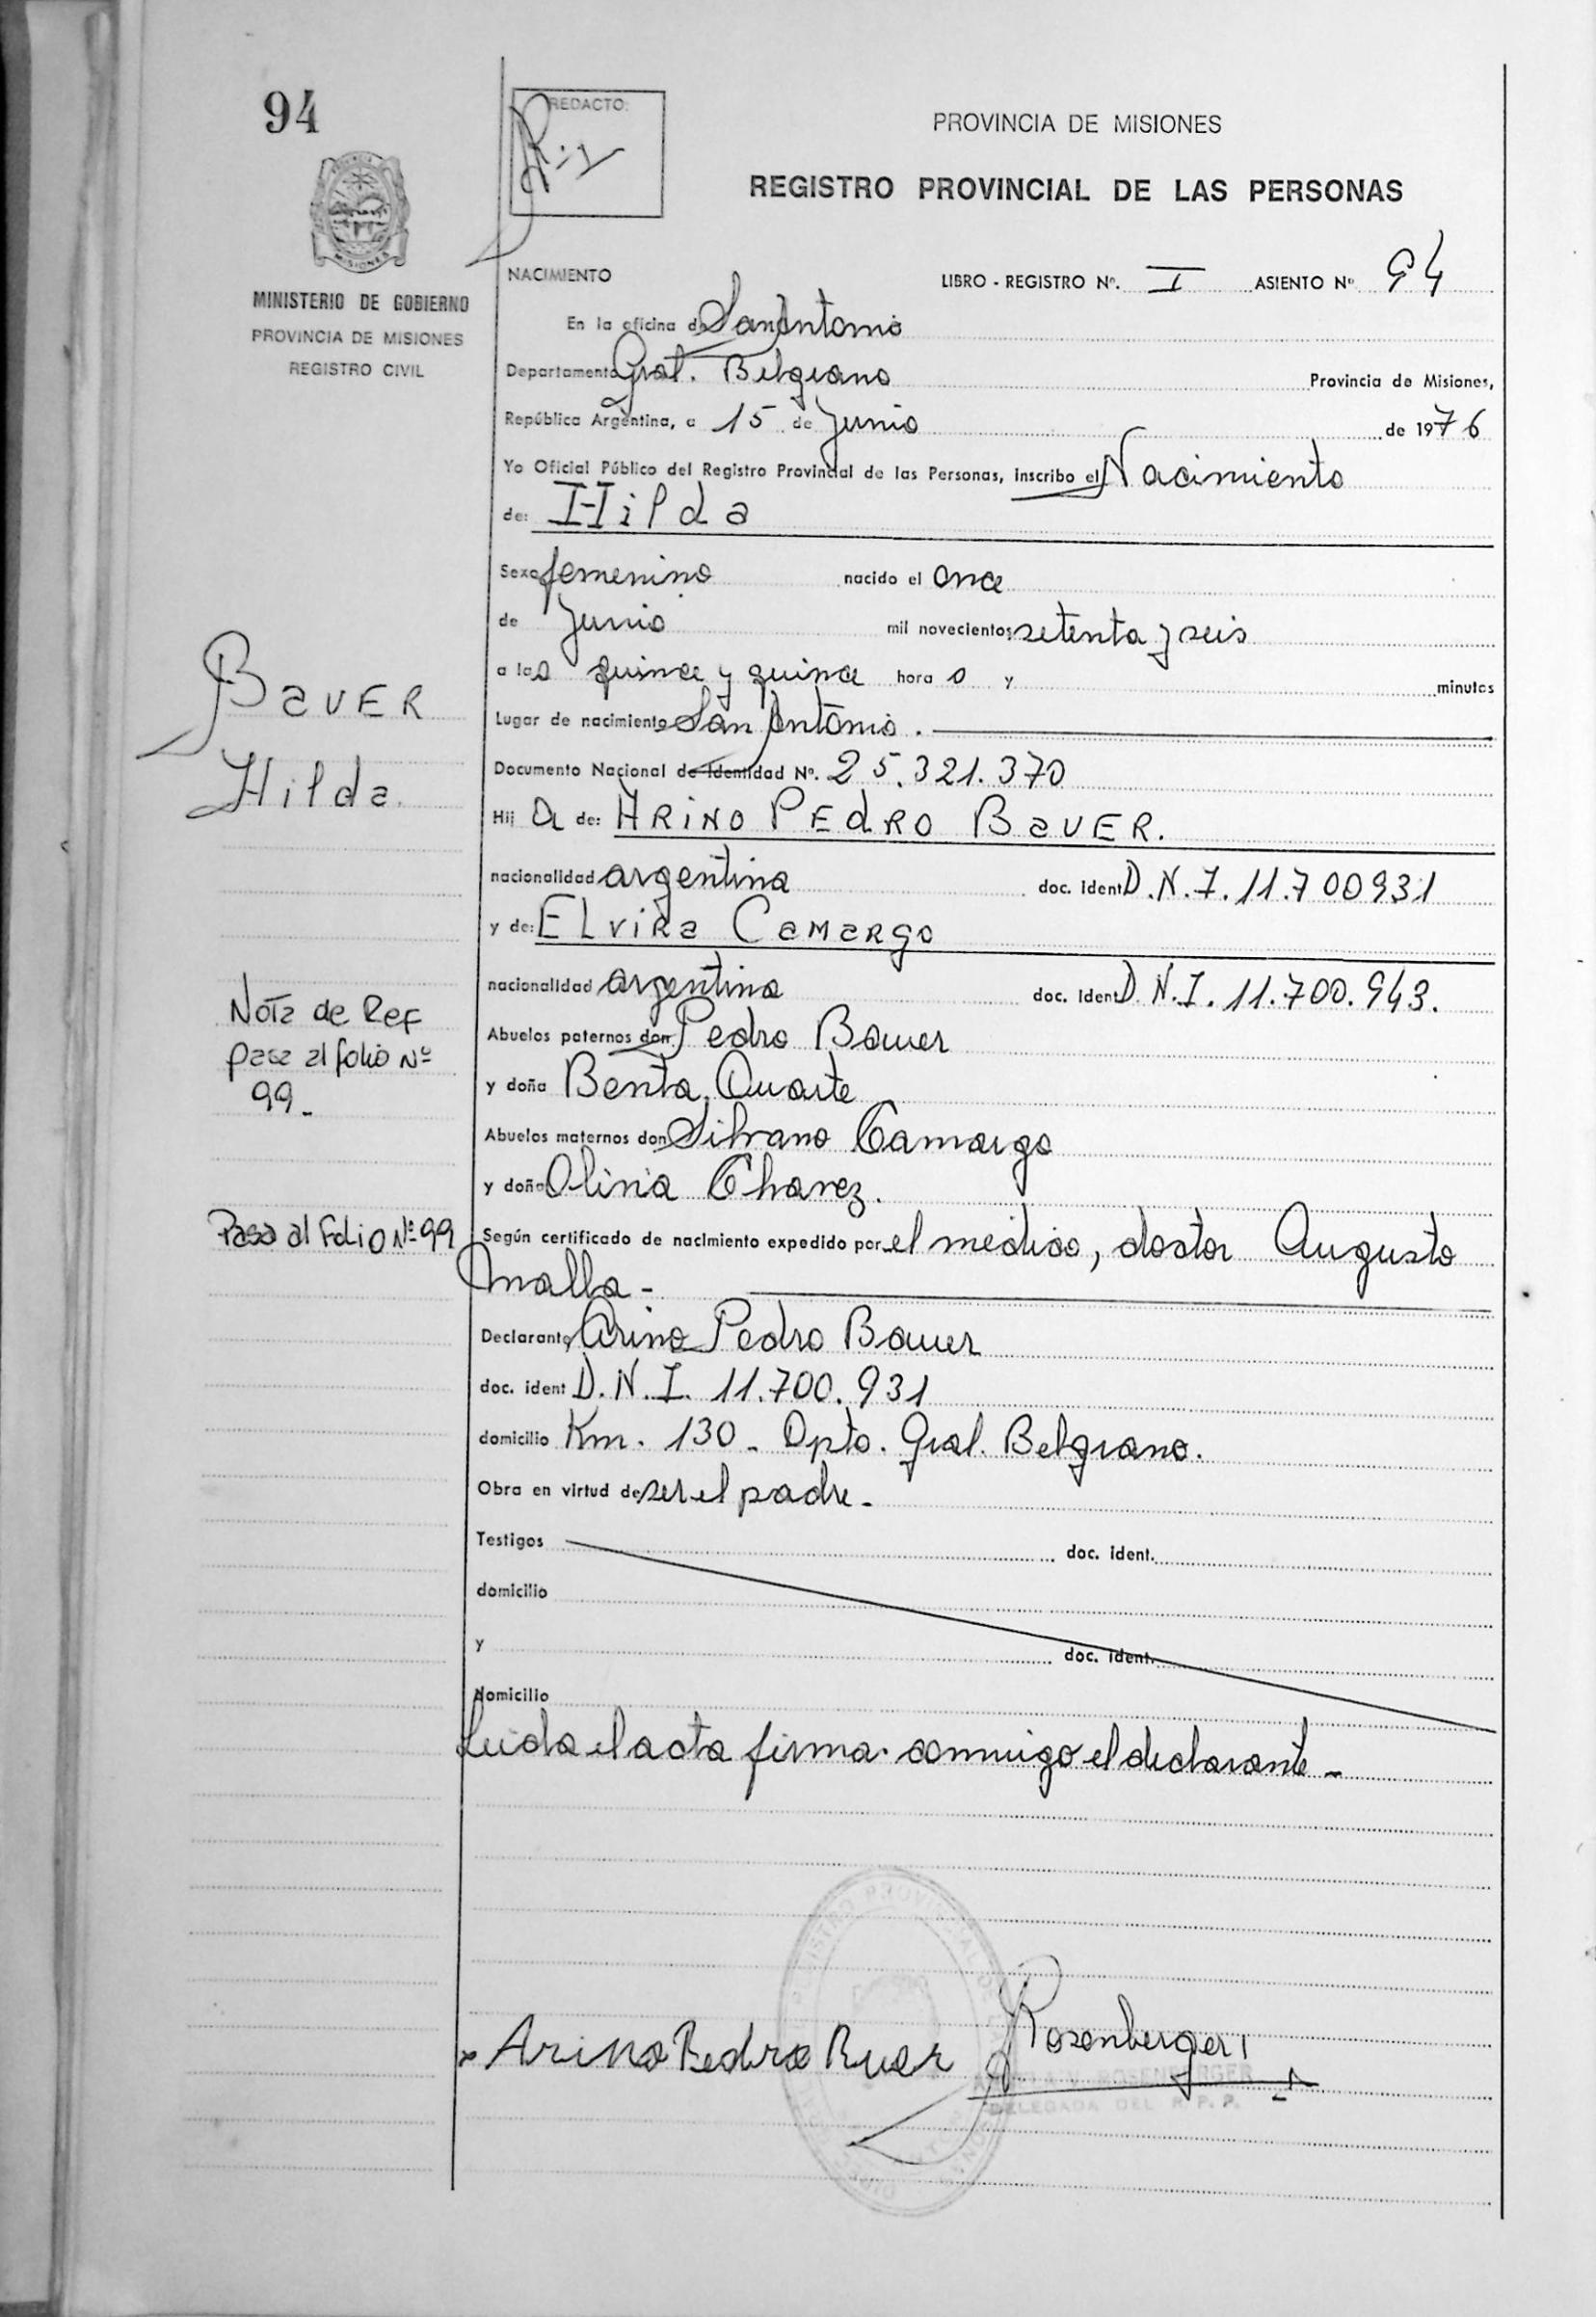 94
REDACTO:
PROVINCIA DE MISIONES
REGISTRO PROVINCIAL DE LAS PERSONAS
MISIONES
MINISTERIO DE GOBIERNO
PROVINCIA DE MISIONES
REGISTRO CIVIL
NACIMIENTO LIBRO - REGISTRO Nº. I ASIENTO Nº 94
En la oficina de San Antonio
Departamento Gral. Belgrano Provincia de Misiones,
República Argentina, a 15 de Junio de 1976
Yo Oficial Público del Registro Provincial de las Personas, inscribo el Nacimiento
de: Hilda
Sexo femenino nacido el once
de Junio mil novecientos setenta y seis
a las quince y quince hora s y minutos
Lugar de nacimiento San Antonio.
Documento Nacional de Identidad Nº. 25.321.370
Hij a de: ARINO PEdRO BaUER.
nacionalidad argentina doc. ident D.N.I. 11.700931
y de: ELviRa CaMaRgo
nacionalidad argentina doc. ident D.N.I. 11.700.943.
Abuelos paternos don Pedro Bauer
y doña Benta Duarte
Abuelos maternos don Silvano Camargo
y doña Olivia Chavez.
Según certificado de nacimiento expedido por el medico, doctor Augusto
Malla-
Declarante Arino Pedro Bauer
doc. ident D.N.I. 11.700.931
domicilio Km. 130- Dpto. Gral. Belgrano.
Obra en virtud de ser el padre-
Testigos doc. ident.
domicilio
y doc. ident.
domicilio
Leida el acta firma conmigo el declarante-
BaUER
Hilda
Nota de Ref
pasa al folio Nº
99-
Pasa al Folio Nº 99
Arino Pedro Buer
Rosenberger
ROSENBERGER
DELEGADA DEL R.P.P.